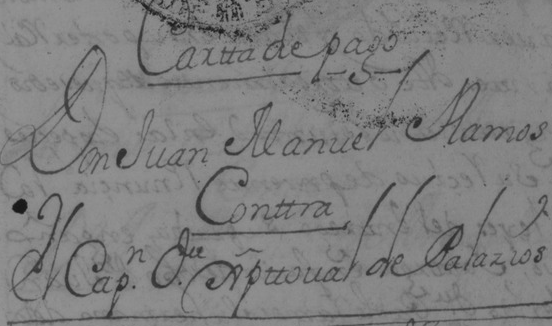 Cartta de pago
Don Juan Manuel Ramos
Conttra
El Cap.n D.n Xpttoual de Palazios